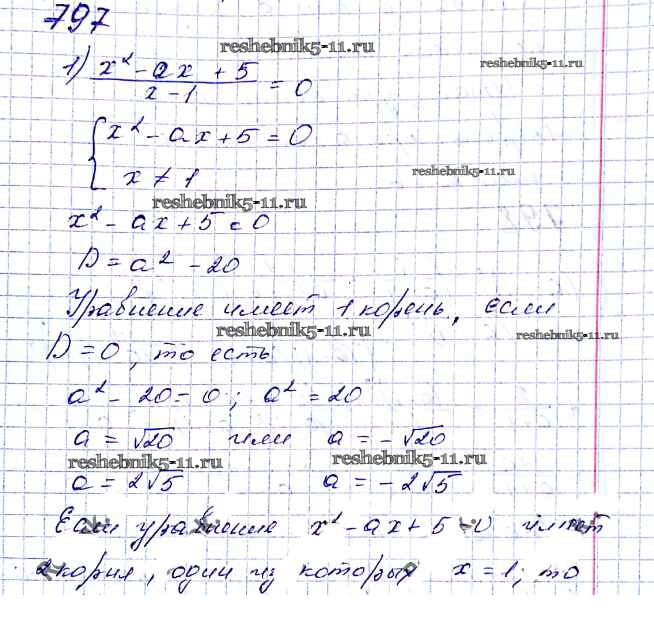 797
resheb​nik5-11.ru
1) (x² - ax + 5)/(x - 1) = 0
reshebnik5-11.ru
{ x² - ax + 5 = 0
x ≠ 1
reshebnik5-11.ru
reshebnik5-11.ru
x² - ax + 5 = 0
D = a² - 20
Уравнение имеет 1 корень, если
reshebnik5-11.ru
reshebnik5-11.ru
D = 0, то есть
a² - 20 = 0; a² = 20
a = √20 или a = -√20
reshebnik5-11.ru
reshebnik5-11.ru
a = 2√5 a = -2√5
Если уравнение x² - ax + 5 = 0 имеет
2 корня, один из которых x = 1, то